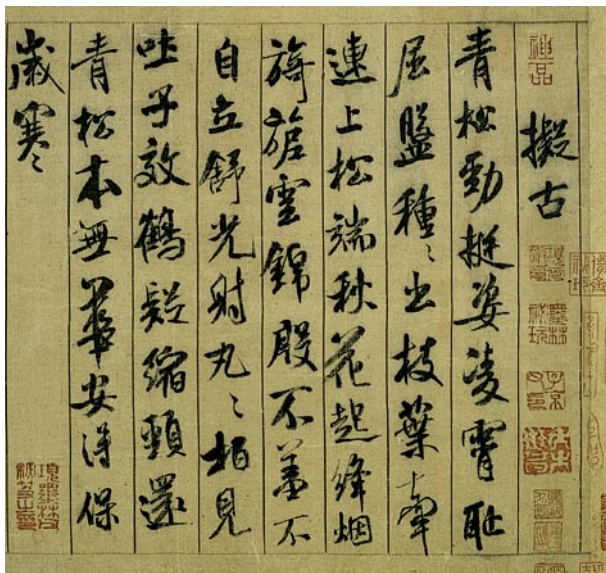 神品
擬古
青松勁挺姿凌霄耻
屈盤種〻出枝葉牽
連上松端秋花起絳烟
旖旎雲錦殷不羞不
自立舒光射丸〻柏見
吐子效鶴疑縮頸還
青松本無華安得保
歲寒〻